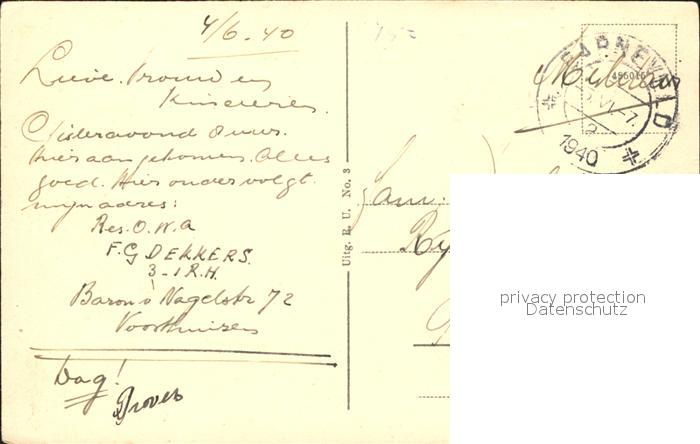 4/6.40
Lieve Vrouw en
Kinderen.
Gisteravond 8 uur.
hier aangekomen. Alles
goed. Hieronder volgt.
mijn adres:
Res. O.W.A
F.G DEKKERS.
3-1 R.H.
Baron v Nagelstr 72
Voorthuizen
Dag!
Uitg. R. U. No. 3
BARNEVELD
1940
Fam:
privacy protection
Datenschutz